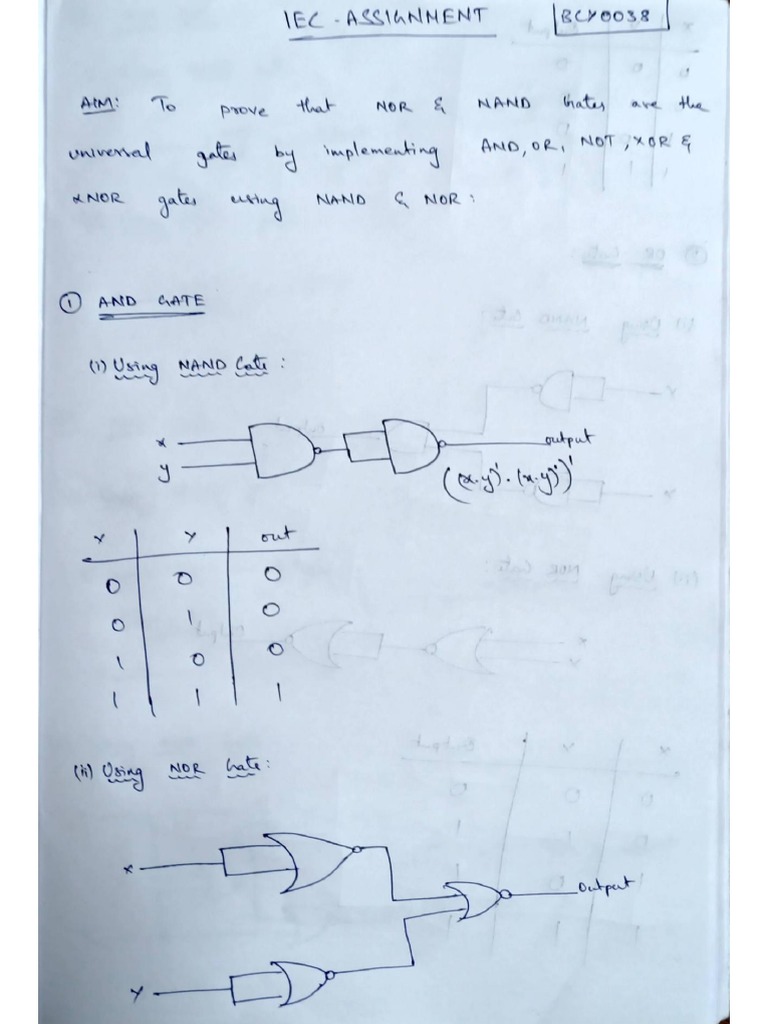 IEC - ASSIGNMENT
BCY0038
AIM: To prove that NOR & NAND Gates are the
universal gates by implementing AND, OR, NOT, XOR &
XNOR gates using NAND & NOR:
① AND GATE
(i) Using NAND Gate:
x
y
output
((x.y)'.(x.y)')'
X Y out
0 0 0
0 1 0
1 0 0
1 1 1
(ii) Using NOR Gate:
X
Y
Output